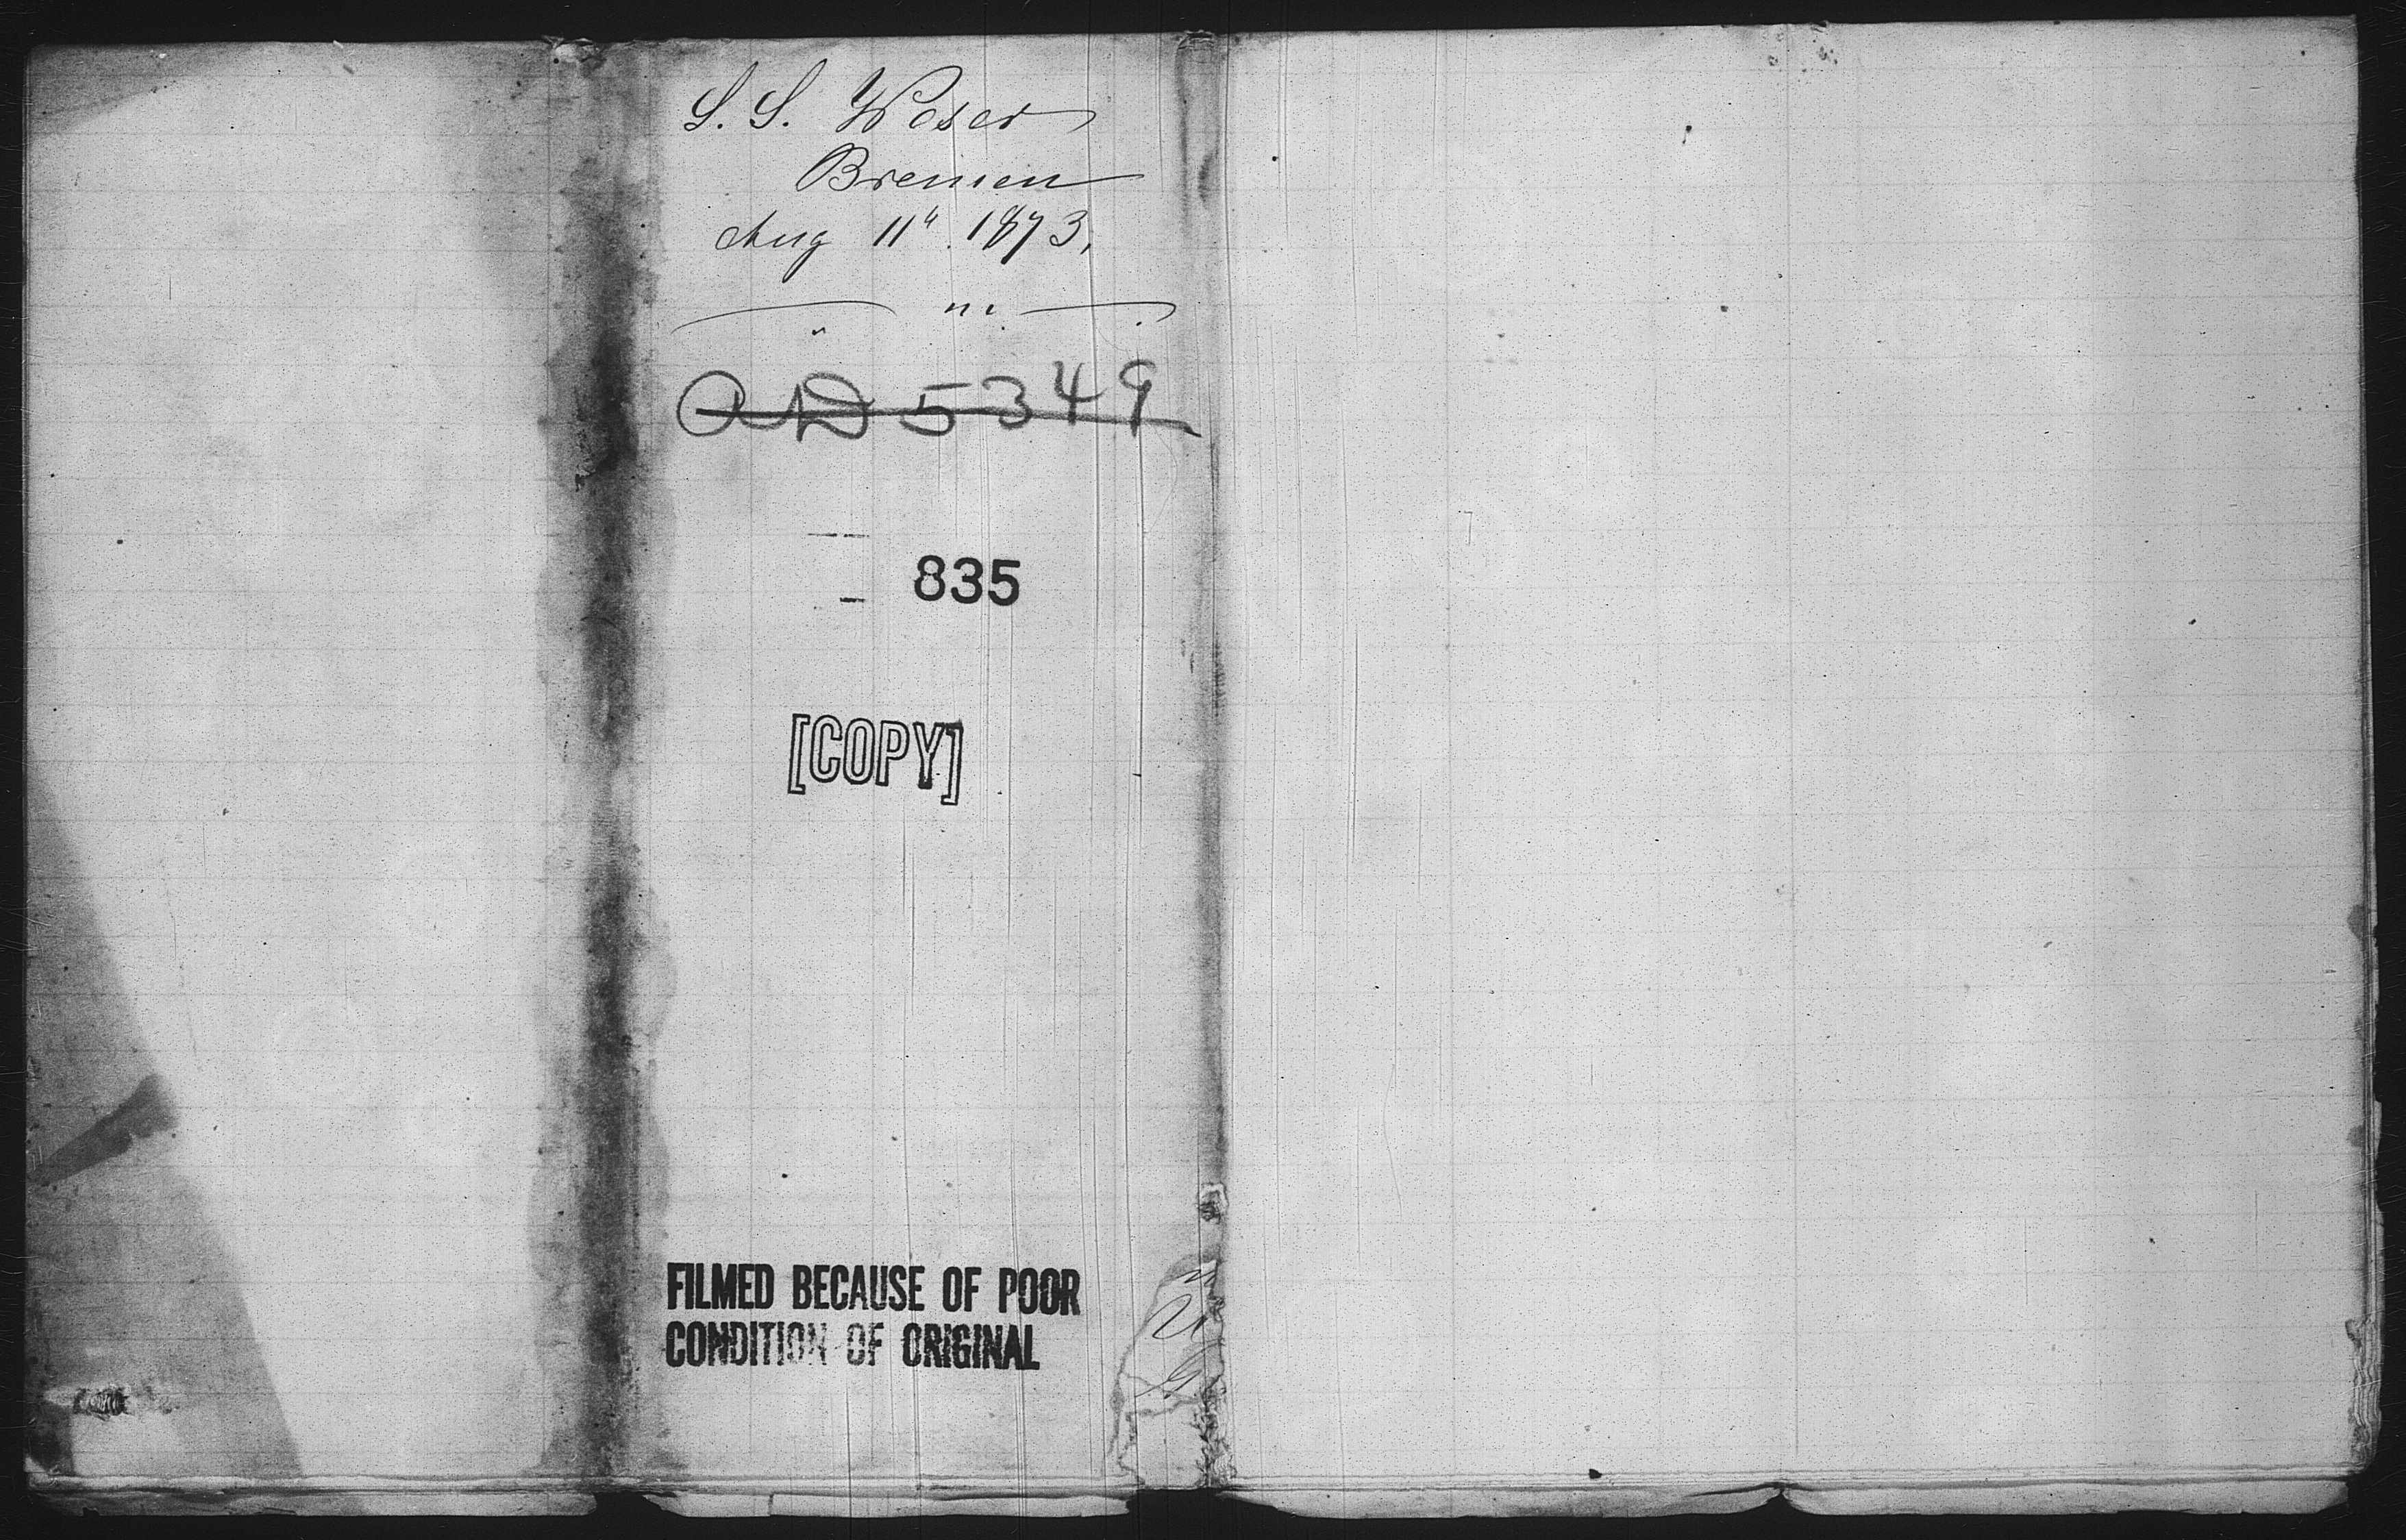 S. S. Weser
Bremen
Aug 11" 1873.
AD 5349
835
[COPY]
FILMED BECAUSE OF POOR
CONDITION OF ORIGINAL